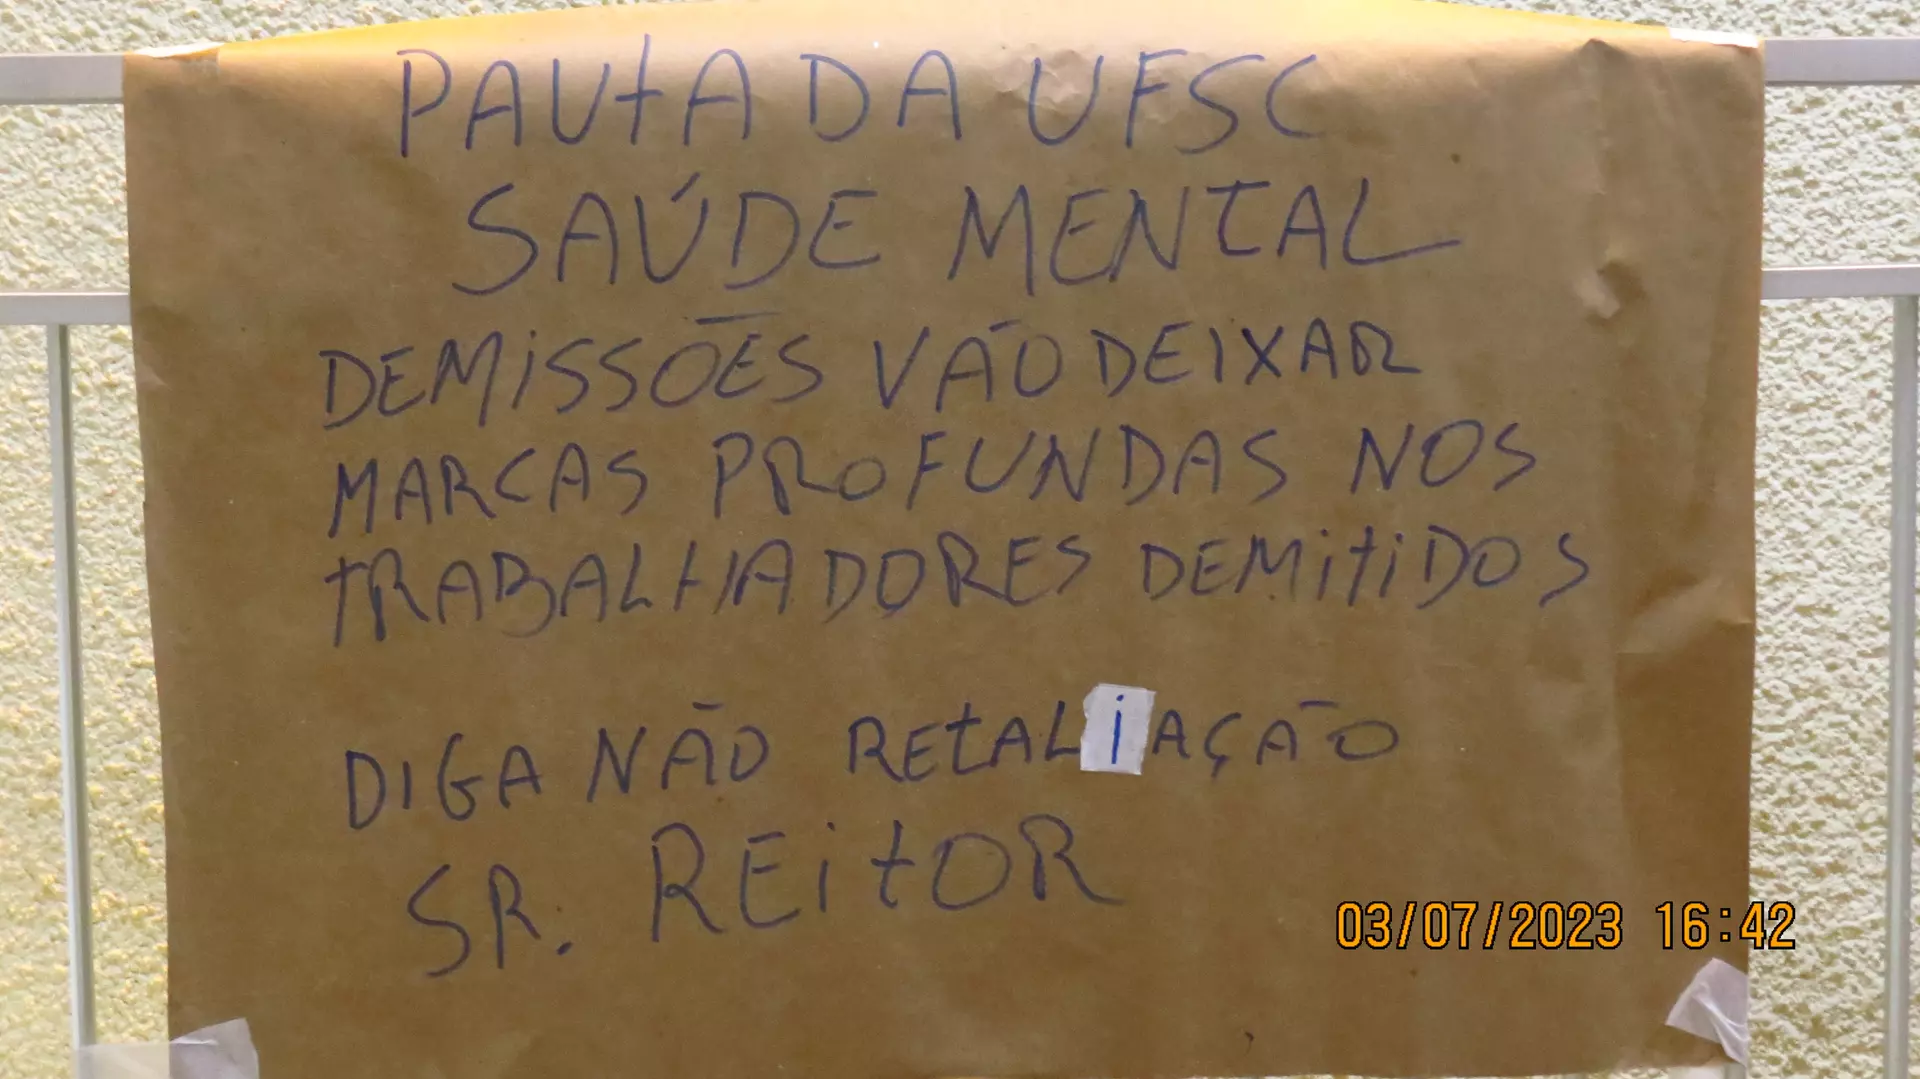 PAUtA DA UFSC
SAÚDE MENTAL
DEMiSSÕES VÃO DEIXAR
MARCAS PROFUNDAS NOS
tRABALHADORES DEMitiDOS
DIGA NÃO REtALiAÇÃO
SR. REitOR
03/07/2023 16:42